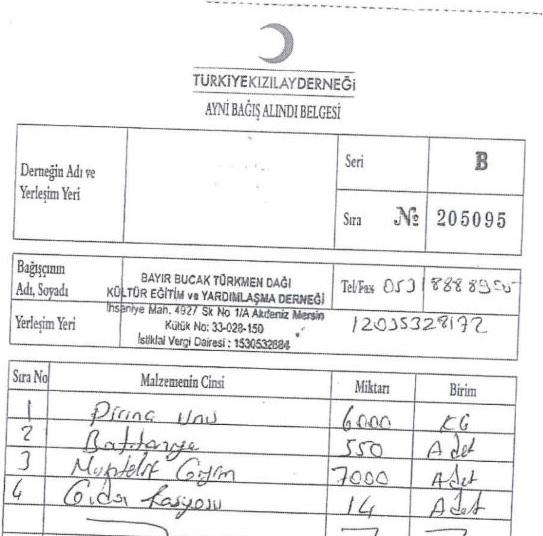 TÜRKİYEKIZILAYDERNEĞİ
AYNİ BAĞIŞ ALINDI BELGESİ
Derneğin Adı ve
Yerleşim Yeri
Seri B
Sıra № 205095
Bağışçının
Adı, Soyadı
BAYIR BUCAK TÜRKMEN DAĞI
KÜLTÜR EĞİTİM ve YARDIMLAŞMA DERNEĞİ
İhsaniye Mah. 4927 Sk No 1/A Akdeniz Mersin
Kütük No: 33-028-150
İstiklal Vergi Dairesi : 1530532884
Tel/Fax
Yerleşim Yeri
12035328172
Sıra No Malzemenin Cinsi Miktarı Birim
1 Pirinç Unu 6000 KG
2 Battaniye 550 Adet
3 Muhtelif Giyim 7000 Adet
4 Gıda Kasyosu 14 Adet